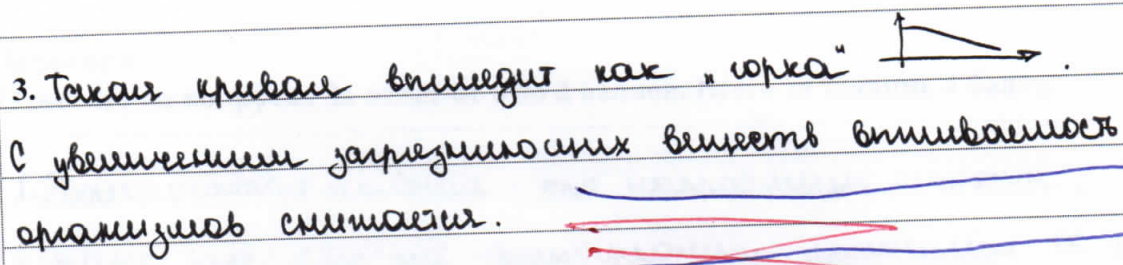 3. Такая кривая выглядит как „горка“ .
С увеличением загрязняющих веществ выживаемость
организмов снижается.